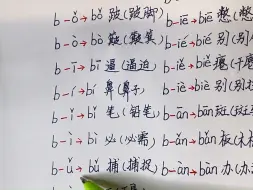 b-ǒ→bǒ 跛(跛脚) b-iē→biē 憋(憋
b-ò→bò 簸(簸箕) b-ié→bié 别(别
b-ī→bī 逼(逼迫) b-iě→biě 瘪(干瘪
b-í→bí 鼻(鼻子) b-iè→biè 别(别
b-ǐ→bǐ 笔(铅笔) b-ān→bān 斑(斑
b-ì→bì 必(必需) b-ǎn→bǎn 板(木板
b-ǔ→bǔ 捕(捕捉) b-àn→bàn 办(办